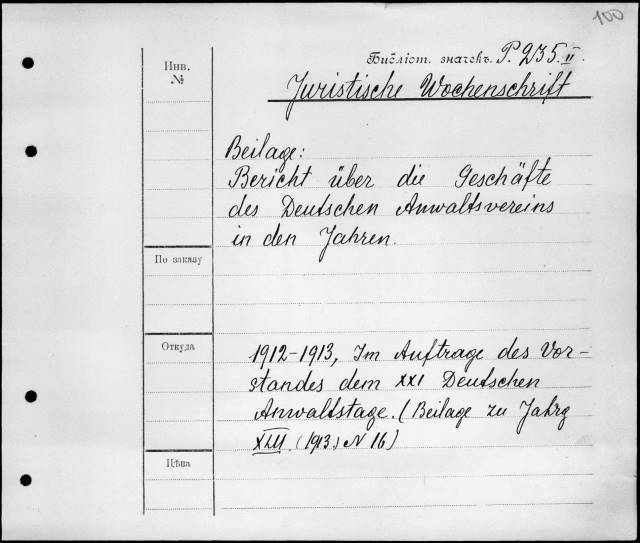 100
Библіот. значекъ. P. 235. II.
Инв.
№
Juristische Wochenschrift
Beilage:
Bericht über die Geschäfte
des Deutschen Anwaltsvereins
in den Jahren.
По заказу
Откуда
1912-1913, Im Auftrage des Vor-
standes dem XXI Deutschen
Anwaltstage. (Beilage zu Jahrg
(1913) N 16)
Цѣна